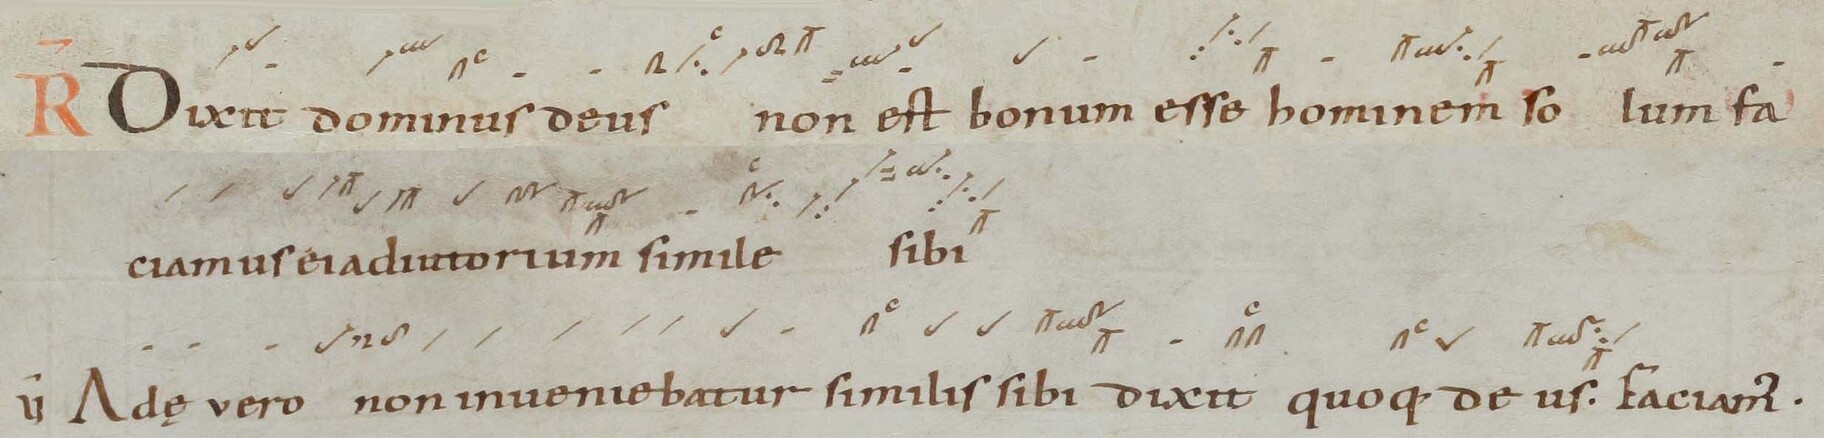 R̄ Dixit dominus deus non est bonum esse hominem so lum fa
ciamus ei adiutorium simile sibi
v̄ Adę vero non inueniebatur similis sibi dixit quoq de us. Faciam̄.